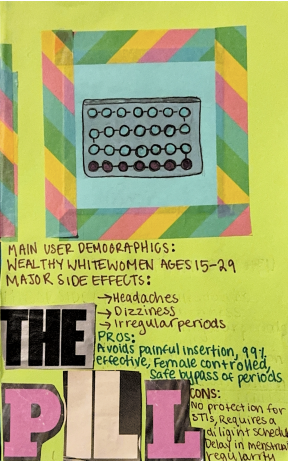 MAIN USER DEMOGRAPHICS:
WEALTHY WHITE WOMEN AGES 15-29
MAJOR SIDE EFFECTS:
→Headaches
→Dizziness
→Irregular periods
THE
PILL
PROS:
Avoids painful insertion, 99%
effective, Female controlled,
Safe bypass of periods
CONS:
No protection for
STIs, Requires a
diligint schedu
Delay in menstrual
regularity